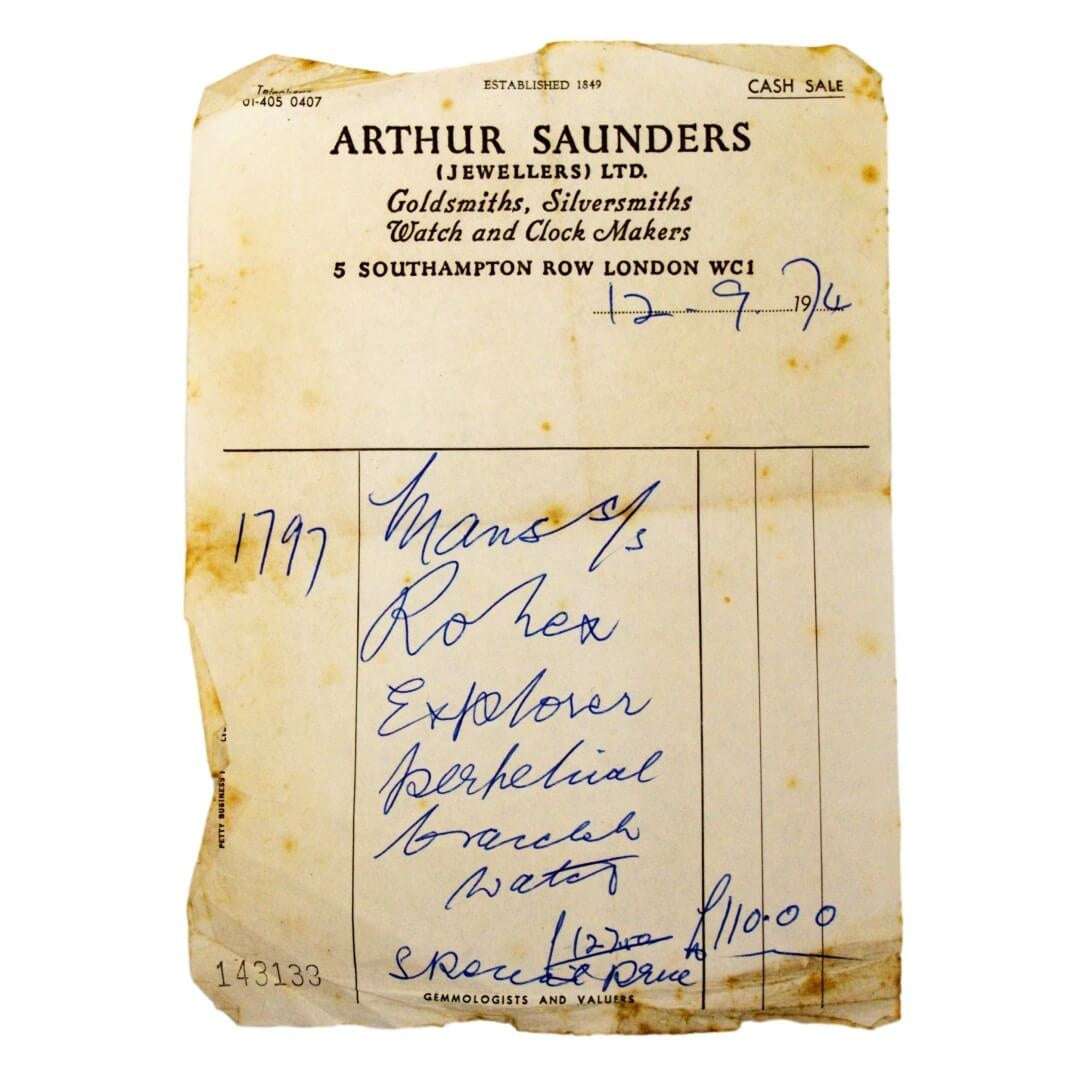 ESTABLISHED 1849
CASH SALE
Telephone
01-405 0407
ARTHUR SAUNDERS
(JEWELLERS) LTD.
Goldsmiths, Silversmiths
Watch and Clock Makers
5 SOUTHAMPTON ROW LONDON WC1
12-9. 1974
1797
Mans s/s
Rolex
Explorer
perpetual
bracelet
watch
£110.00
Special price
143133
GEMMOLOGISTS AND VALUERS
PETTY BUSINESS